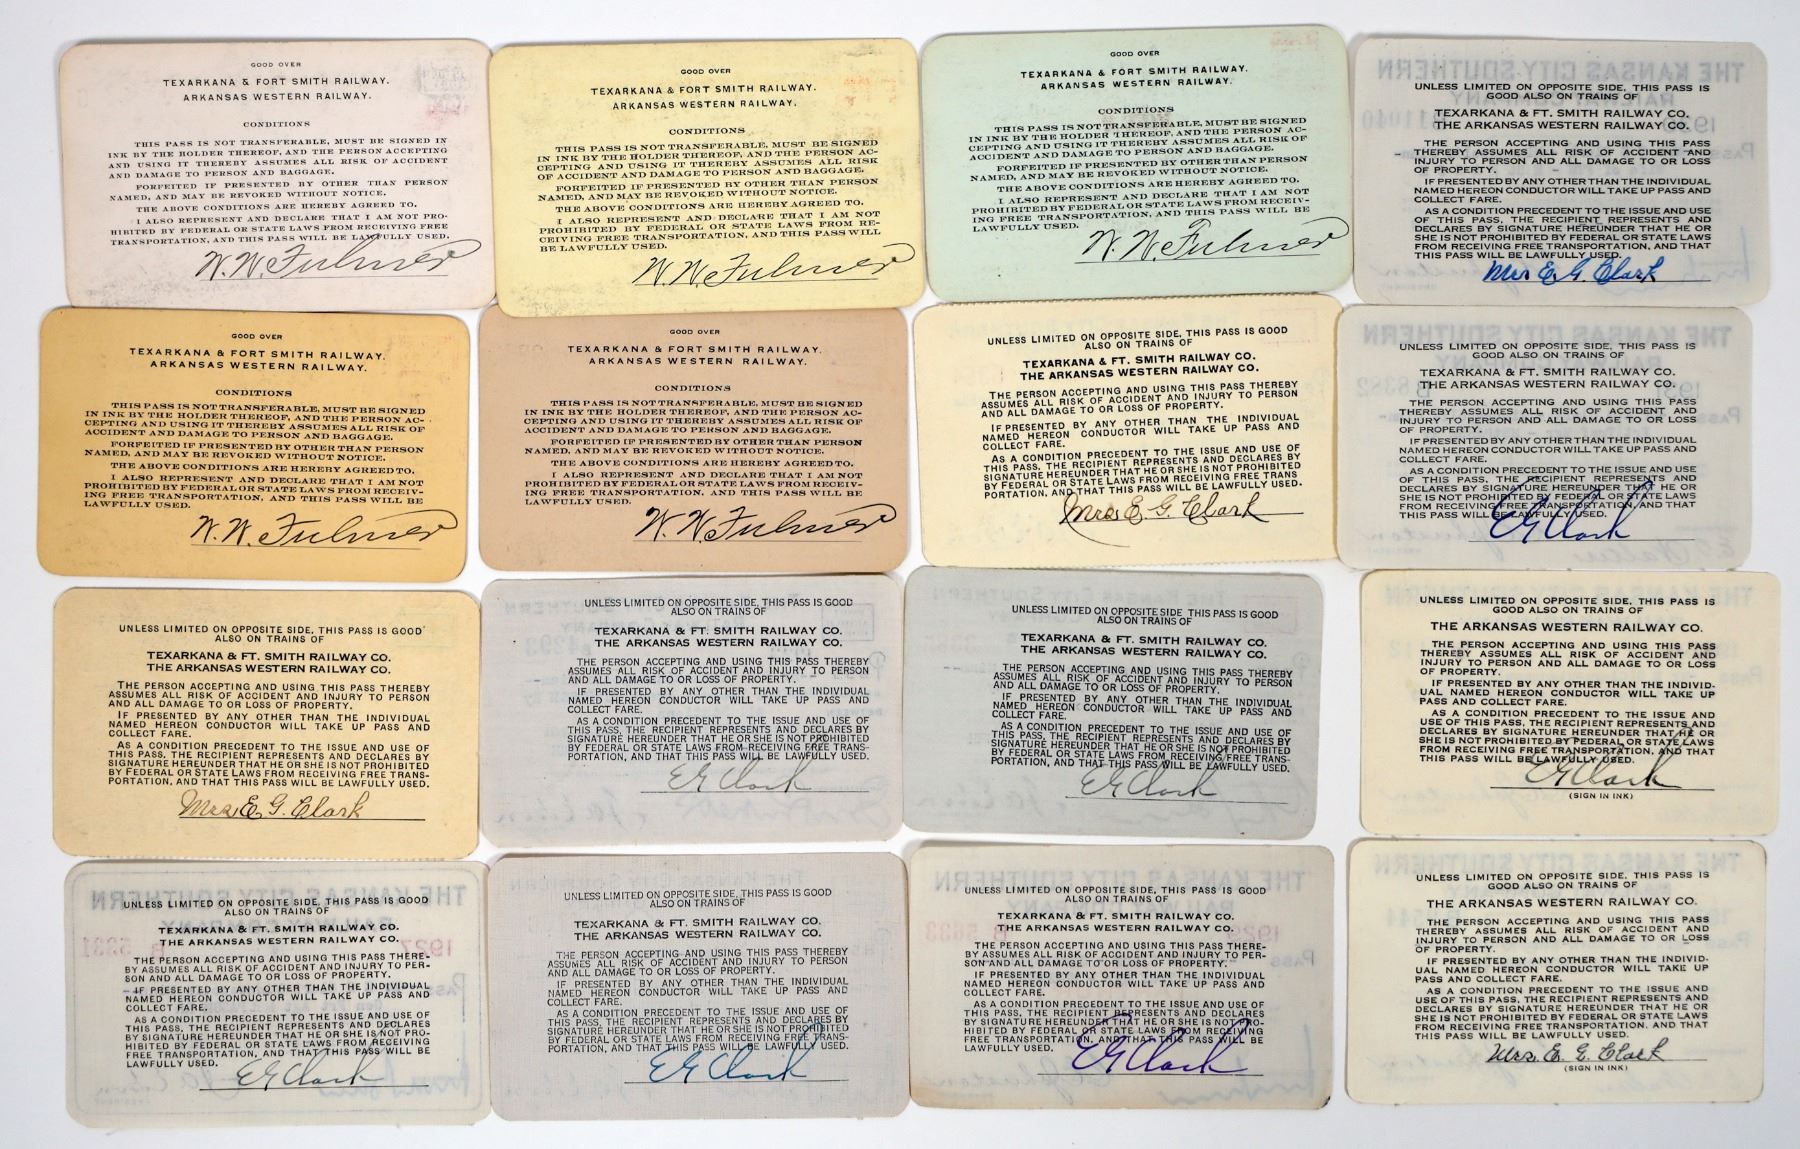 GOOD OVER
TEXARKANA & FORT SMITH RAILWAY.
ARKANSAS WESTERN RAILWAY.
CONDITIONS
THIS PASS IS NOT TRANSFERABLE, MUST BE SIGNED IN
INK BY THE HOLDER THEREOF, AND THE PERSON ACCEPTING
AND USING IT THEREBY ASSUMES ALL RISK OF ACCIDENT
AND DAMAGE TO PERSON AND BAGGAGE.
FORFEITED IF PRESENTED BY OTHER THAN PERSON
NAMED, AND MAY BE REVOKED WITHOUT NOTICE.
THE ABOVE CONDITIONS ARE HEREBY AGREED TO.
I ALSO REPRESENT AND DECLARE THAT I AM NOT PRO-
HIBITED BY FEDERAL OR STATE LAWS FROM RECEIVING FREE
TRANSPORTATION, AND THIS PASS WILL BE LAWFULLY USED.
W. W. Fulmer
GOOD OVER
TEXARKANA & FORT SMITH RAILWAY.
ARKANSAS WESTERN RAILWAY.
CONDITIONS
THIS PASS IS NOT TRANSFERABLE, MUST BE SIGNED
IN INK BY THE HOLDER THEREOF, AND THE PERSON AC-
CEPTING AND USING IT THEREBY ASSUMES ALL RISK
OF ACCIDENT AND DAMAGE TO PERSON AND BAGGAGE.
FORFEITED IF PRESENTED BY OTHER THAN PERSON
NAMED, AND MAY BE REVOKED WITHOUT NOTICE.
THE ABOVE CONDITIONS ARE HEREBY AGREED TO.
I ALSO REPRESENT AND DECLARE THAT I AM NOT
PROHIBITED BY FEDERAL OR STATE LAWS FROM RE-
CEIVING FREE TRANSPORTATION, AND THIS PASS WILL
BE LAWFULLY USED.
W. W. Fulmer
GOOD OVER
TEXARKANA & FORT SMITH RAILWAY.
ARKANSAS WESTERN RAILWAY.
CONDITIONS
THIS PASS IS NOT TRANSFERABLE, MUST BE SIGNED
IN INK BY THE HOLDER THEREOF, AND THE PERSON AC-
CEPTING AND USING IT THEREBY ASSUMES ALL RISK OF
ACCIDENT AND DAMAGE TO PERSON AND BAGGAGE.
FORFEITED IF PRESENTED BY OTHER THAN PERSON
NAMED, AND MAY BE REVOKED WITHOUT NOTICE.
THE ABOVE CONDITIONS ARE HEREBY AGREED TO.
I ALSO REPRESENT AND DECLARE THAT I AM NOT
PROHIBITED BY FEDERAL OR STATE LAWS FROM RECEIV-
ING FREE TRANSPORTATION, AND THIS PASS WILL BE
LAWFULLY USED.
W. W. Fulmer
UNLESS LIMITED ON OPPOSITE SIDE, THIS PASS IS
GOOD ALSO ON TRAINS OF
TEXARKANA & FT. SMITH RAILWAY CO.
THE ARKANSAS WESTERN RAILWAY CO.
THE PERSON ACCEPTING AND USING THIS PASS
THEREBY ASSUMES ALL RISK OF ACCIDENT AND
INJURY TO PERSON AND ALL DAMAGE TO OR LOSS
OF PROPERTY.
IF PRESENTED BY ANY OTHER THAN THE INDIVIDUAL
NAMED HEREON CONDUCTOR WILL TAKE UP PASS AND
COLLECT FARE.
AS A CONDITION PRECEDENT TO THE ISSUE AND USE
OF THIS PASS, THE RECIPIENT REPRESENTS AND
DECLARES BY SIGNATURE HEREUNDER THAT HE OR
SHE IS NOT PROHIBITED BY FEDERAL OR STATE LAWS
FROM RECEIVING FREE TRANSPORTATION, AND THAT
THIS PASS WILL BE LAWFULLY USED.
Mrs E. G. Clark
GOOD OVER
TEXARKANA & FORT SMITH RAILWAY.
ARKANSAS WESTERN RAILWAY.
CONDITIONS
THIS PASS IS NOT TRANSFERABLE, MUST BE SIGNED
IN INK BY THE HOLDER THEREOF, AND THE PERSON AC-
CEPTING AND USING IT THEREBY ASSUMES ALL RISK OF
ACCIDENT AND DAMAGE TO PERSON AND BAGGAGE.
FORFEITED IF PRESENTED BY OTHER THAN PERSON
NAMED, AND MAY BE REVOKED WITHOUT NOTICE.
THE ABOVE CONDITIONS ARE HEREBY AGREED TO.
I ALSO REPRESENT AND DECLARE THAT I AM NOT
PROHIBITED BY FEDERAL OR STATE LAWS FROM RECEIV-
ING FREE TRANSPORTATION, AND THIS PASS WILL BE
LAWFULLY USED.
W. W. Fulmer
GOOD OVER
TEXARKANA & FORT SMITH RAILWAY.
ARKANSAS WESTERN RAILWAY.
CONDITIONS
THIS PASS IS NOT TRANSFERABLE, MUST BE SIGNED
IN INK BY THE HOLDER THEREOF, AND THE PERSON AC-
CEPTING AND USING IT THEREBY ASSUMES ALL RISK OF
ACCIDENT AND DAMAGE TO PERSON AND BAGGAGE.
FORFEITED IF PRESENTED BY OTHER THAN PERSON
NAMED, AND MAY BE REVOKED WITHOUT NOTICE.
THE ABOVE CONDITIONS ARE HEREBY AGREED TO.
I ALSO REPRESENT AND DECLARE THAT I AM NOT
PROHIBITED BY FEDERAL OR STATE LAWS FROM RECEIV-
ING FREE TRANSPORTATION, AND THIS PASS WILL BE
LAWFULLY USED.
W. W. Fulmer
UNLESS LIMITED ON OPPOSITE SIDE, THIS PASS IS GOOD
ALSO ON TRAINS OF
TEXARKANA & FT. SMITH RAILWAY CO.
THE ARKANSAS WESTERN RAILWAY CO.
THE PERSON ACCEPTING AND USING THIS PASS THEREBY
ASSUMES ALL RISK OF ACCIDENT AND INJURY TO PERSON
AND ALL DAMAGE TO OR LOSS OF PROPERTY.
IF PRESENTED BY ANY OTHER THAN THE INDIVIDUAL
NAMED HEREON CONDUCTOR WILL TAKE UP PASS AND
COLLECT FARE.
AS A CONDITION PRECEDENT TO THE ISSUE AND USE OF
THIS PASS, THE RECIPIENT REPRESENTS AND DECLARES BY
SIGNATURE HEREUNDER THAT HE OR SHE IS NOT PROHIBITED
BY FEDERAL OR STATE LAWS FROM RECEIVING FREE TRANS
PORTATION, AND THAT THIS PASS WILL BE LAWFULLY USED.
Mrs. E. G. Clark
UNLESS LIMITED ON OPPOSITE SIDE, THIS PASS IS
GOOD ALSO ON TRAINS OF
TEXARKANA & FT. SMITH RAILWAY CO.
THE ARKANSAS WESTERN RAILWAY CO.
THE PERSON ACCEPTING AND USING THIS PASS
THEREBY ASSUMES ALL RISK OF ACCIDENT AND
INJURY TO PERSON AND ALL DAMAGE TO OR LOSS
OF PROPERTY.
IF PRESENTED BY ANY OTHER THAN THE INDIVIDUAL
NAMED HEREON CONDUCTOR WILL TAKE UP PASS AND
COLLECT FARE.
AS A CONDITION PRECEDENT TO THE ISSUE AND USE
OF THIS PASS, THE RECIPIENT REPRESENTS AND
DECLARES BY SIGNATURE HEREUNDER THAT HE OR
SHE IS NOT PROHIBITED BY FEDERAL OR STATE LAWS
FROM RECEIVING FREE TRANSPORTATION, AND THAT
THIS PASS WILL BE LAWFULLY USED.
E G Clark
UNLESS LIMITED ON OPPOSITE SIDE, THIS PASS IS GOOD
ALSO ON TRAINS OF
TEXARKANA & FT. SMITH RAILWAY CO.
THE ARKANSAS WESTERN RAILWAY CO.
THE PERSON ACCEPTING AND USING THIS PASS THEREBY
ASSUMES ALL RISK OF ACCIDENT AND INJURY TO PERSON
AND ALL DAMAGE TO OR LOSS OF PROPERTY.
IF PRESENTED BY ANY OTHER THAN THE INDIVIDUAL
NAMED HEREON CONDUCTOR WILL TAKE UP PASS AND
COLLECT FARE.
AS A CONDITION PRECEDENT TO THE ISSUE AND USE OF
THIS PASS, THE RECIPIENT REPRESENTS AND DECLARES BY
SIGNATURE HEREUNDER THAT HE OR SHE IS NOT PROHIBITED
BY FEDERAL OR STATE LAWS FROM RECEIVING FREE TRANS-
PORTATION, AND THAT THIS PASS WILL BE LAWFULLY USED.
Mrs. E. G. Clark
UNLESS LIMITED ON OPPOSITE SIDE, THIS PASS IS GOOD
ALSO ON TRAINS OF
TEXARKANA & FT. SMITH RAILWAY CO.
THE ARKANSAS WESTERN RAILWAY CO.
THE PERSON ACCEPTING AND USING THIS PASS THEREBY
ASSUMES ALL RISK OF ACCIDENT AND INJURY TO PERSON
AND ALL DAMAGE TO OR LOSS OF PROPERTY.
IF PRESENTED BY ANY OTHER THAN THE INDIVIDUAL
NAMED HEREON CONDUCTOR WILL TAKE UP PASS AND
COLLECT FARE.
AS A CONDITION PRECEDENT TO THE ISSUE AND USE OF
THIS PASS, THE RECIPIENT REPRESENTS AND DECLARES BY
SIGNATURE HEREUNDER THAT HE OR SHE IS NOT PROHIBITED
BY FEDERAL OR STATE LAWS FROM RECEIVING FREE TRANS-
PORTATION, AND THAT THIS PASS WILL BE LAWFULLY USED.
E G Clark
UNLESS LIMITED ON OPPOSITE SIDE, THIS PASS IS GOOD
ALSO ON TRAINS OF
TEXARKANA & FT. SMITH RAILWAY CO.
THE ARKANSAS WESTERN RAILWAY CO.
THE PERSON ACCEPTING AND USING THIS PASS THEREBY
ASSUMES ALL RISK OF ACCIDENT AND INJURY TO PERSON
AND ALL DAMAGE TO OR LOSS OF PROPERTY.
IF PRESENTED BY ANY OTHER THAN THE INDIVIDUAL
NAMED HEREON CONDUCTOR WILL TAKE UP PASS AND
COLLECT FARE.
AS A CONDITION PRECEDENT TO THE ISSUE AND USE OF
THIS PASS, THE RECIPIENT REPRESENTS AND DECLARES BY
SIGNATURE HEREUNDER THAT HE OR SHE IS NOT PROHIBITED
BY FEDERAL OR STATE LAWS FROM RECEIVING FREE TRANS-
PORTATION, AND THAT THIS PASS WILL BE LAWFULLY USED.
E G Clark
UNLESS LIMITED ON OPPOSITE SIDE, THIS PASS IS
GOOD ALSO ON TRAINS OF
THE ARKANSAS WESTERN RAILWAY CO.
THE PERSON ACCEPTING AND USING THIS PASS
THEREBY ASSUMES ALL RISK OF ACCIDENT AND
INJURY TO PERSON AND ALL DAMAGE TO OR LOSS
OF PROPERTY.
IF PRESENTED BY ANY OTHER THAN THE INDIVID-
UAL NAMED HEREON CONDUCTOR WILL TAKE UP
PASS AND COLLECT FARE.
AS A CONDITION PRECEDENT TO THE ISSUE AND
USE OF THIS PASS, THE RECIPIENT REPRESENTS AND
DECLARES BY SIGNATURE HEREUNDER THAT HE OR
SHE IS NOT PROHIBITED BY FEDERAL OR STATE LAWS
FROM RECEIVING FREE TRANSPORTATION, AND THAT
THIS PASS WILL BE LAWFULLY USED.
E G Clark
(SIGN IN INK)
UNLESS LIMITED ON OPPOSITE SIDE, THIS PASS IS GOOD
ALSO ON TRAINS OF
TEXARKANA & FT. SMITH RAILWAY CO.
THE ARKANSAS WESTERN RAILWAY CO.
THE PERSON ACCEPTING AND USING THIS PASS THERE-
BY ASSUMES ALL RISK OF ACCIDENT AND INJURY TO PER-
SON AND ALL DAMAGE TO OR LOSS OF PROPERTY.
IF PRESENTED BY ANY OTHER THAN THE INDIVIDUAL
NAMED HEREON CONDUCTOR WILL TAKE UP PASS AND
COLLECT FARE.
AS A CONDITION PRECEDENT TO THE ISSUE AND USE OF
THIS PASS, THE RECIPIENT REPRESENTS AND DECLARES
BY SIGNATURE HEREUNDER THAT HE OR SHE IS NOT PRO-
HIBITED BY FEDERAL OR STATE LAWS FROM RECEIVING
FREE TRANSPORTATION, AND THAT THIS PASS WILL BE
LAWFULLY USED.
E G Clark
UNLESS LIMITED ON OPPOSITE SIDE, THIS PASS IS GOOD
ALSO ON TRAINS OF
TEXARKANA & FT. SMITH RAILWAY CO.
THE ARKANSAS WESTERN RAILWAY CO.
THE PERSON ACCEPTING AND USING THIS PASS THEREBY
ASSUMES ALL RISK OF ACCIDENT AND INJURY TO PERSON
AND ALL DAMAGE TO OR LOSS OF PROPERTY.
IF PRESENTED BY ANY OTHER THAN THE INDIVIDUAL
NAMED HEREON CONDUCTOR WILL TAKE UP PASS AND
COLLECT FARE.
AS A CONDITION PRECEDENT TO THE ISSUE AND USE OF
THIS PASS, THE RECIPIENT REPRESENTS AND DECLARES BY
SIGNATURE HEREUNDER THAT HE OR SHE IS NOT PROHIBITED
BY FEDERAL OR STATE LAWS FROM RECEIVING FREE TRANS-
PORTATION, AND THAT THIS PASS WILL BE LAWFULLY USED.
E G Clark
UNLESS LIMITED ON OPPOSITE SIDE, THIS PASS IS GOOD
ALSO ON TRAINS OF
TEXARKANA & FT. SMITH RAILWAY CO.
THE ARKANSAS WESTERN RAILWAY CO.
THE PERSON ACCEPTING AND USING THIS PASS THERE-
BY ASSUMES ALL RISK OF ACCIDENT AND INJURY TO PER-
SON AND ALL DAMAGE TO OR LOSS OF PROPERTY.
IF PRESENTED BY ANY OTHER THAN THE INDIVIDUAL
NAMED HEREON CONDUCTOR WILL TAKE UP PASS AND
COLLECT FARE.
AS A CONDITION PRECEDENT TO THE ISSUE AND USE OF
THIS PASS, THE RECIPIENT REPRESENTS AND DECLARES
BY SIGNATURE HEREUNDER THAT HE OR SHE IS NOT PRO-
HIBITED BY FEDERAL OR STATE LAWS FROM RECEIVING
FREE TRANSPORTATION, AND THAT THIS PASS WILL BE
LAWFULLY USED.
E G Clark
UNLESS LIMITED ON OPPOSITE SIDE, THIS PASS IS
GOOD ALSO ON TRAINS OF
THE ARKANSAS WESTERN RAILWAY CO.
THE PERSON ACCEPTING AND USING THIS PASS
THEREBY ASSUMES ALL RISK OF ACCIDENT AND
INJURY TO PERSON AND ALL DAMAGE TO OR LOSS
OF PROPERTY.
IF PRESENTED BY ANY OTHER THAN THE INDIVID-
UAL NAMED HEREON CONDUCTOR WILL TAKE UP
PASS AND COLLECT FARE.
AS A CONDITION PRECEDENT TO THE ISSUE AND
USE OF THIS PASS, THE RECIPIENT REPRESENTS AND
DECLARES BY SIGNATURE HEREUNDER THAT HE OR
SHE IS NOT PROHIBITED BY FEDERAL OR STATE LAWS
FROM RECEIVING FREE TRANSPORTATION, AND THAT
THIS PASS WILL BE LAWFULLY USED.
Mrs. E. G. Clark
(SIGN IN INK)